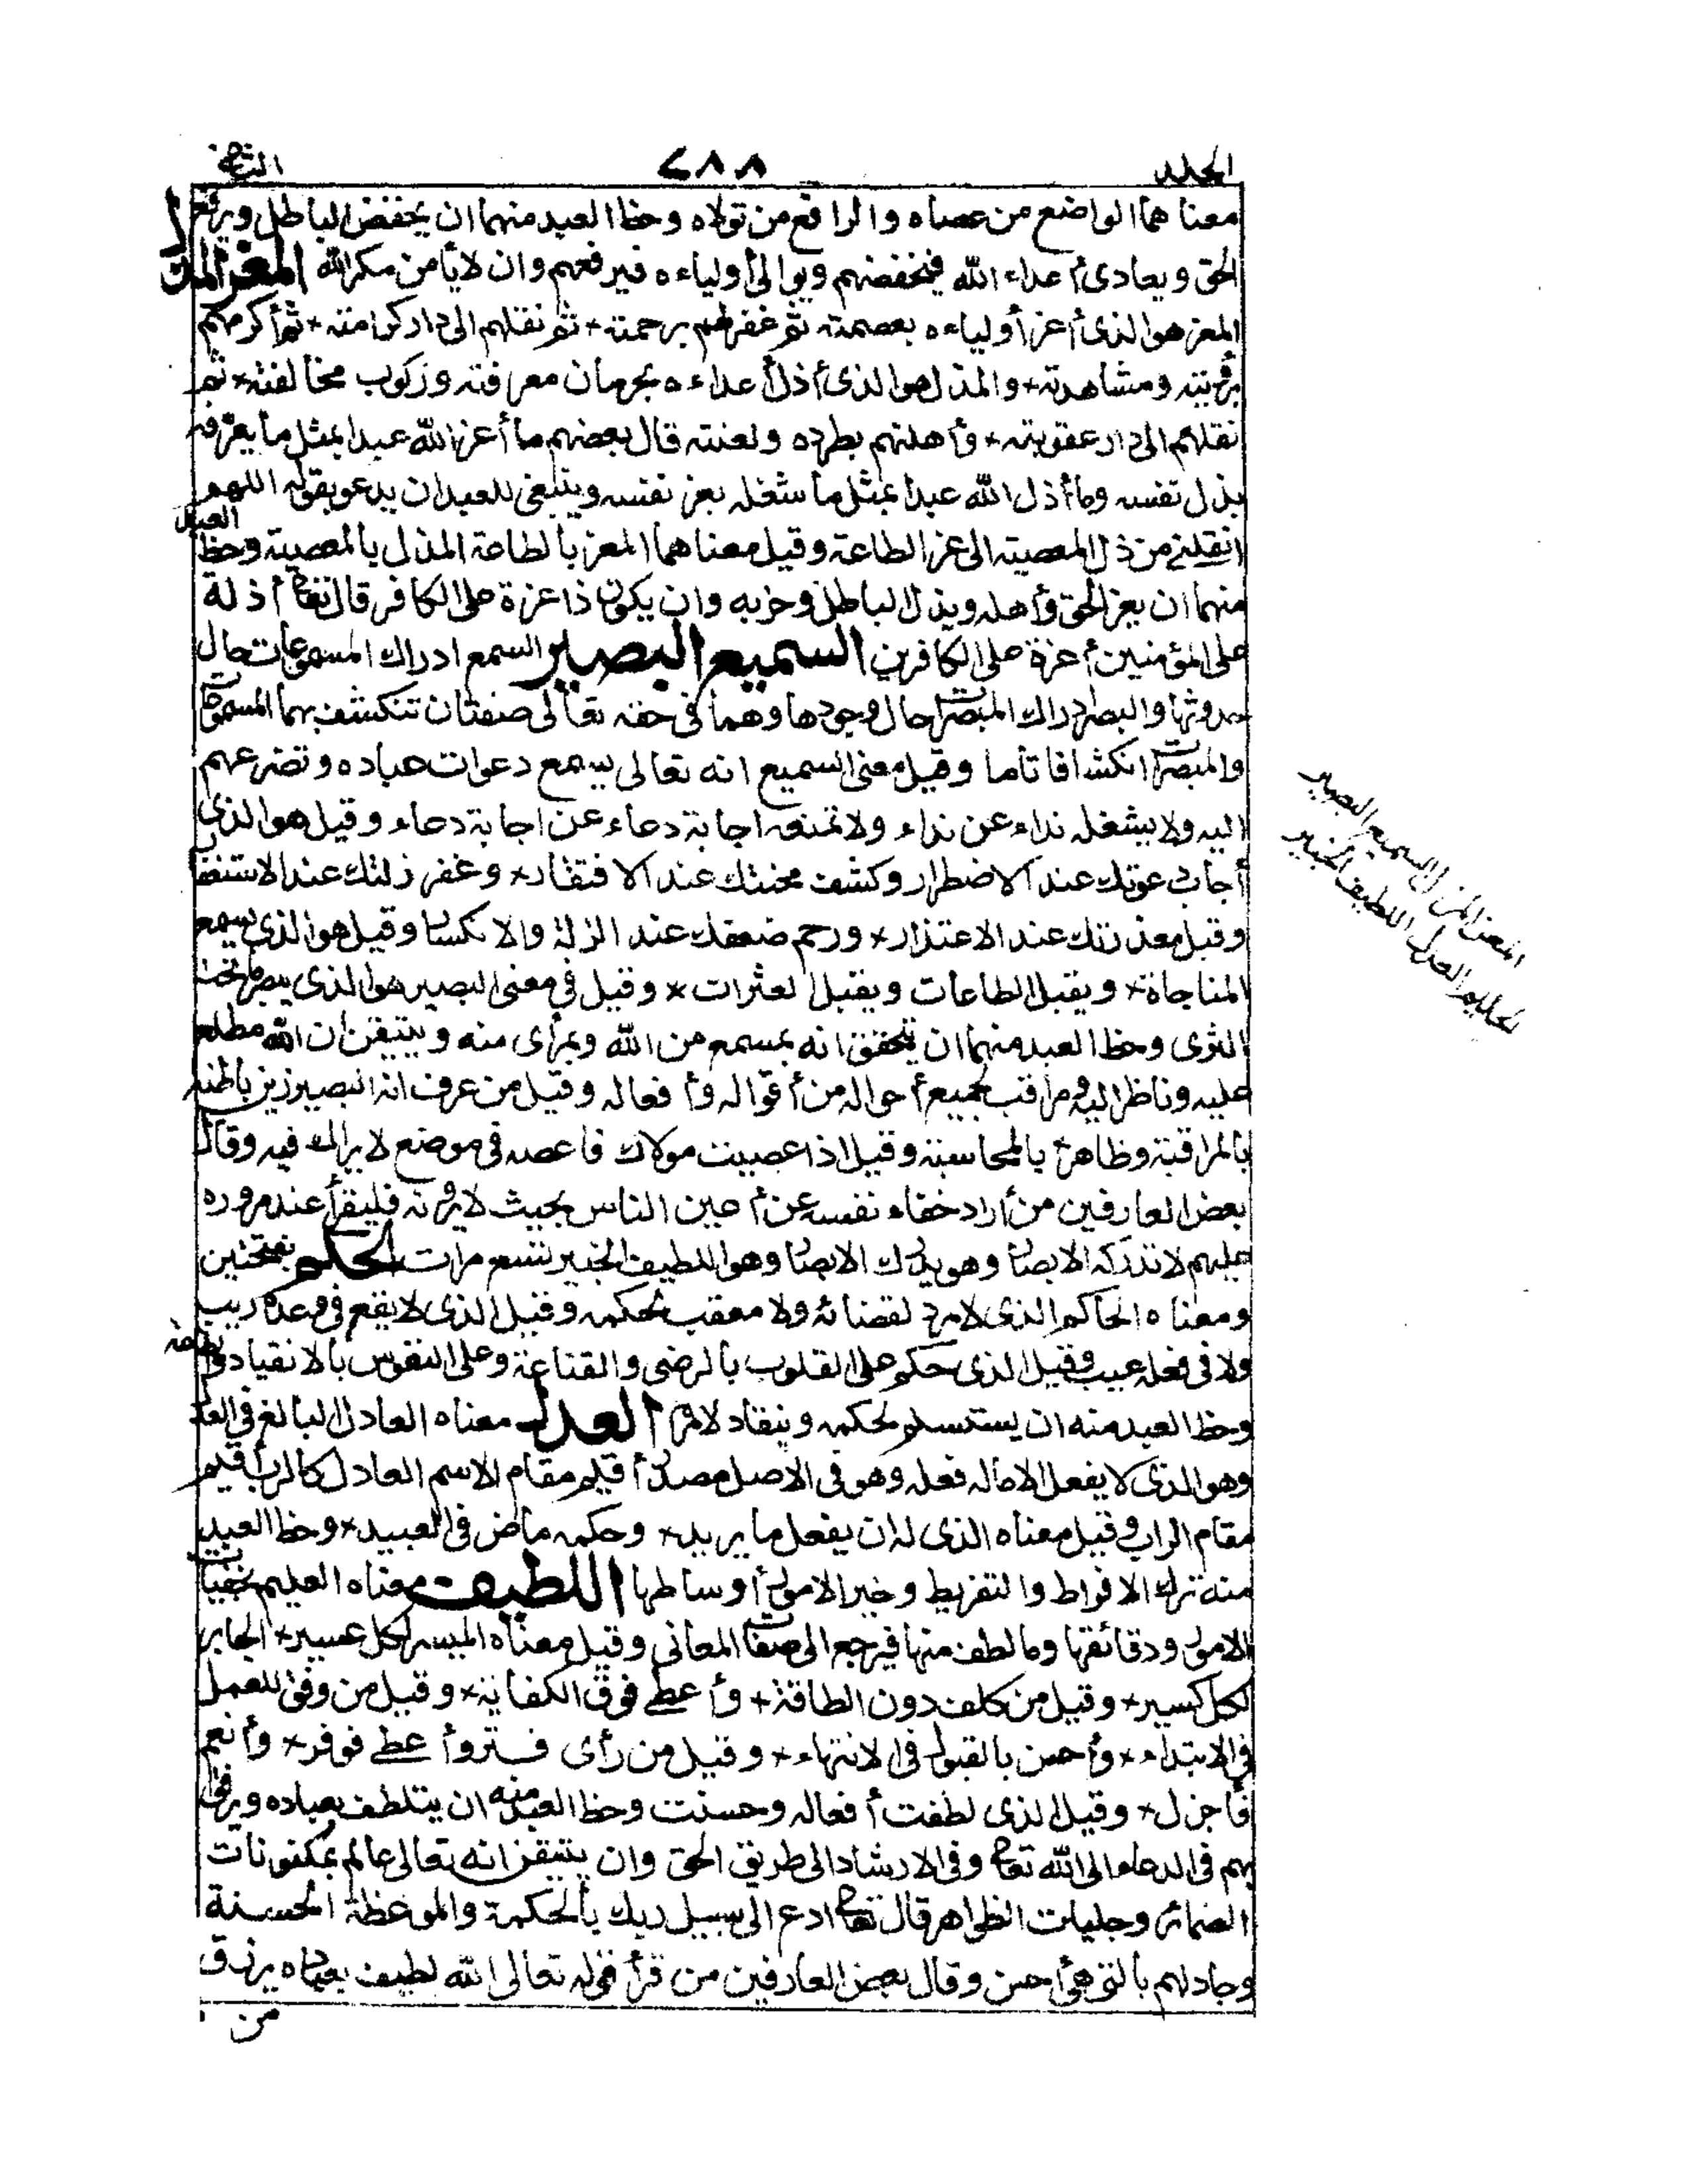 المجلد ٢٨٨ الشيخ
معناهما الواضع من عصاه والرافع من تولاه وحظ العبد منهما ان يخفض الباطل ويرفع
الحق ويعادى أعداء الله فيخفضهم ويوالى أولياءه فيرفعهم وان لا يأمن مكر الله المعز المذل
المعز هو الذى أعز أولياءه بعصمته ثم غفر لهم برحمته + ثم نقلهم الى دار كرامته + ثم أكرمهم
برؤيته ومشاهدته + والمذل هو الذى أذل أعداءه بحرمان معرفته وركوب مخالفته + ثم
نقلهم الى دار عقوبته + وأهلهم بطرده ولعنته قال بعضهم ما أعز الله عبدا بمثل ما يعرفه
بذل نفسه وما أذل الله عبدا بمثل ما شغله بعز نفسه وينبغى للعبد ان يدعو بقوله اللهم
انقلنى من ذل المعصية الى عز الطاعة وقيل معناهما المعز بالطاعة المذل بالمعصية وحظ العبد
منهما ان يعز الحق وأهله ويذل الباطل وحزبه وان يكون ذا عزة على الكافر قال تعالى أذلة
على المؤمنين أعزة على الكافرين السميع البصير السمع ادراك المسموعات حال
حدوثها والبصر ادراك المبصرات حال وجودها وهما فى حقه تعالى صفتان تنكشف بهما المسموعات
والمبصرات انكشافا تاما وقيل معنى السميع انه تعالى يسمع دعوات عباده وتضرعهم
اليه ولا يشغله نداء عن نداء ولا تمنعه اجابة دعاء عن اجابة دعاء وقيل هو الذى
أجاب دعوتك عند الاضطرار وكشف محنتك عند الافتقار + وغفر زلتك عند الاستغفار
وقبل معذرتك عند الاعتذار + ورحم ضعفك عند الزلة والانكسار وقيل هو الذى يسمع
المناجاة + ويقبل الطاعات ويقيل العثرات + وقيل فى معنى البصير هو الذى يبصر ما تحت
الثرى وحظ العبد منهما ان يتحقق انه بمسمع من الله وبمرأى منه ويتيقن ان الله مطلع
عليه وناظر اليه ومراقب لجميع أحواله من أقواله وأفعاله وقيل من عرف انه البصير زين باطنه
بالمراقبة وظاهره بالمحاسبة وقيل اذا عصيت مولاك فاعصه فى موضع لا يراك فيه وقال
بعض العارفين من أراد خفاء نفسه عن أعين الناس بحيث لا يرونه فليقرأ عند مروره
عليهم لا تدركه الابصار وهو يدرك الابصار وهو اللطيف الخبير تسع مرات الحكم بفتحتين
ومعناه الحاكم الذى لا مرد لقضائه ولا معقب لحكمه وقيل الذى لا يقع فى وعده ريب
ولا فى فعله عيب وقيل الذى حكم على القلوب بالرضى والقناعة وعلى النفوس بالانقياد والطاعة
وحظ العبد منه ان يستسلم لحكمه وينقاد لامره العدل معناه العادل البالغ فى العدل
وهو الذى لا يفعل الا ماله فعله وهو فى الاصل مصدر أقيم مقام الاسم العادل كالرب أقيم
مقام الراب وقيل معناه الذى له ان يفعل ما يريد + وحكمه ماض فى العبيد + وحظ العبد
منه ترك الافراط والتفريط وخير الامور أوساطها اللطيف معناه العليم بخفيات
الامور ودقائقها وما لطف منها فيرجع الى صفات المعانى وقيل معناه الميسر لكل عسير + الجابر
لكل كسير + وقيل من كلف دون الطاقة + وأعطى فوق الكفاية + وقيل من وفق للعمل
فى الابتداء + وأحسن بالقبول فى الانتهاء + وقيل من رأى فستر وأعطى فوفر + وأنعم
فأجزل + وقيل الذى لطفت أفعاله وحسنت وحظ العبد منه ان يتلطف بعباده ويرفق
بهم فى الدعاء الى الله تعالى وفى الارشاد الى طريق الحق وان يتيقن انه تعالى عالم بمكنونات
الضمائر وجليات الظواهر قال تعالى ادع الى سبيل ربك بالحكمة والموعظة الحسنة
وجادلهم بالتى هى أحسن وقال بعض العارفين من قرأ قوله تعالى الله لطيف بعباده يرزق
من
المعز المذل السميع البصير
الحكم العدل اللطيف الخبير